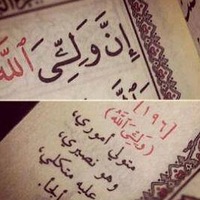 إِنَّ وَلِـِّۧيَ ٱللَّهُ
[١٩٦]
(وَلِـِّۧيَ ٱللَّهُ)
متولي أموري،
وهو نصيري،
عليه متكلي،